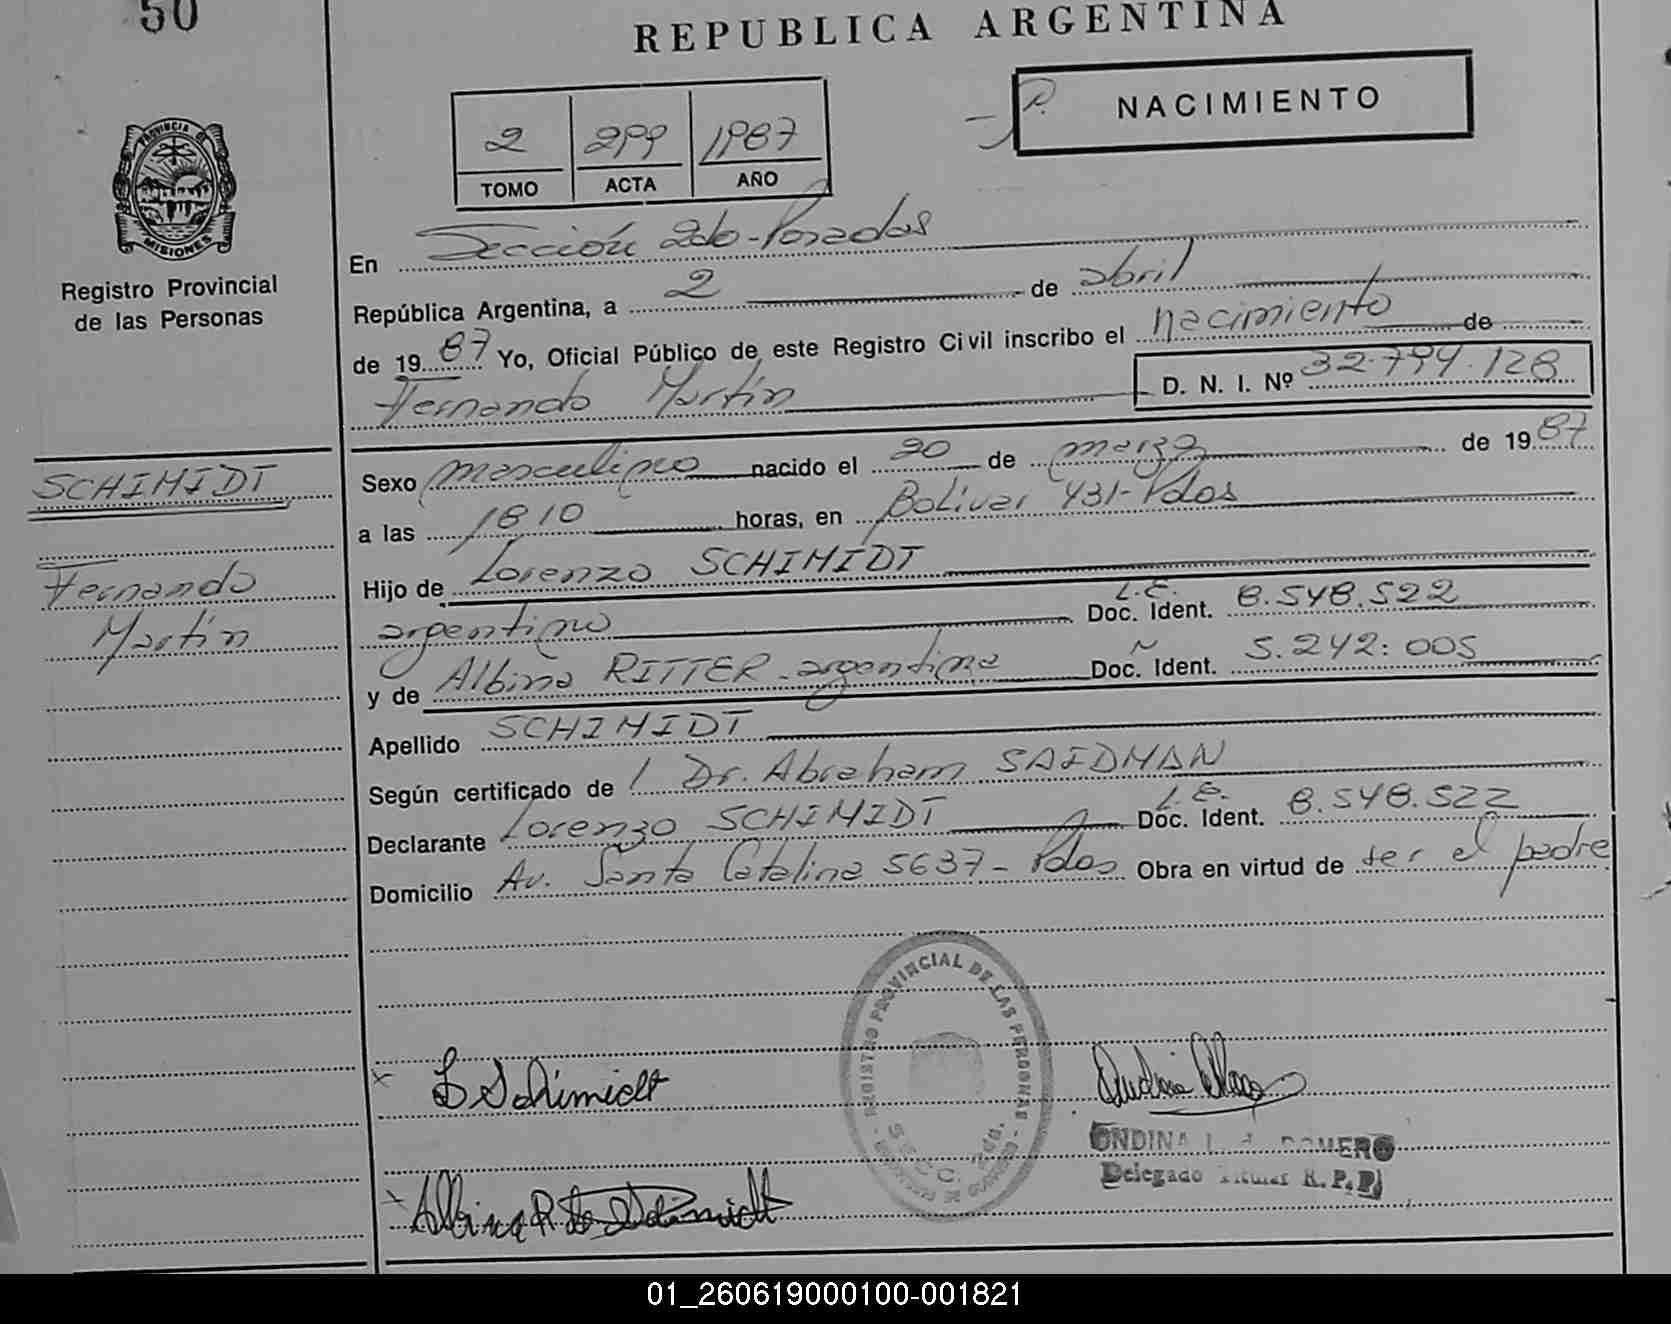 50
REPUBLICA ARGENTINA
NACIMIENTO
2 299 1987
TOMO ACTA AÑO
PROVINCIA DE
MISIONES
Registro Provincial
de las Personas
En Sección 2do - Posadas
República Argentina, a 2 de abril
de 19 87 Yo, Oficial Público de este Registro Civil inscribo el nacimiento de
Fernando Martín D. N. I. Nº 32.794.128
SCHIMIDT
Fernando
Martín
Sexo masculino nacido el 20 de marzo de 19 87
a las 1810 horas, en Bolivar 431 - Pdas
Hijo de Lorenzo SCHIMIDT
argentino Doc. Ident. L.E. 8.548.522
y de Albina RITTER - argentina Doc. Ident. 5.242.005
Apellido SCHIMIDT
Según certificado de Dr. Abraham SAIDMAN
Declarante Lorenzo SCHIMIDT Doc. Ident. L.E. 8.548.522
Domicilio Av. Santa Catalina 5637 - Pdas Obra en virtud de ser el padre
REGISTRO PROVINCIAL DE LAS PERSONAS
SECC. 2da.
L Schimidt
ONDINA ROMERO
Delegado Titular R.P.P.
Albina R de Schimidt
01_260619000100-001821